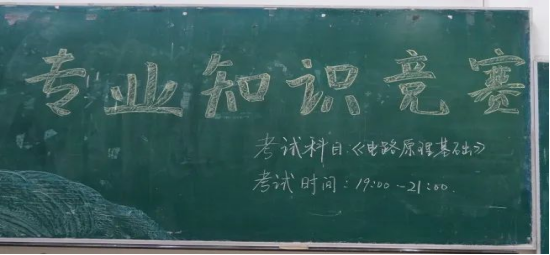 专业知识竞赛
考试科目《电路原理基础》
考试时间：19:00-21:00.